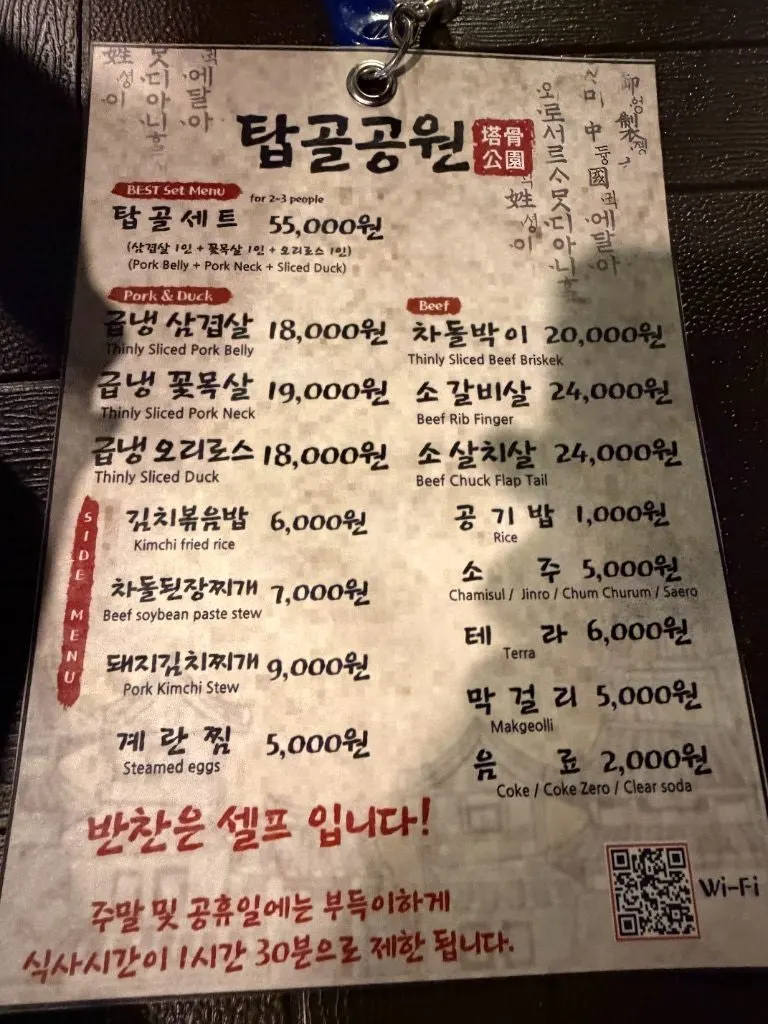 탑골공원
塔骨
公園
BEST Set Menu
for 2~3 people
탑골세트 55,000원
(삼겹살 1인 + 꽃목살 1인 + 오리로스 1인)
(Pork Belly + Pork Neck + Sliced Duck)
Pork & Duck
급냉 삼겹살 18,000원
Thinly Sliced Pork Belly
급냉 꽃목살 19,000원
Thinly Sliced Pork Neck
급냉 오리로스 18,000원
Thinly Sliced Duck
Beef
차돌박이 20,000원
Thinly Sliced Beef Briskek
소 갈비살 24,000원
Beef Rib Finger
소 살치살 24,000원
Beef Chuck Flap Tail
SIDE MENU
김치볶음밥 6,000원
Kimchi fried rice
차돌된장찌개 7,000원
Beef soybean paste stew
돼지김치찌개 9,000원
Pork Kimchi Stew
계란찜 5,000원
Steamed eggs
공기밥 1,000원
Rice
소주 5,000원
Chamisul / Jinro / Chum Churum / Saero
테라 6,000원
Terra
막걸리 5,000원
Makgeolli
음료 2,000원
Coke / Coke Zero / Clear soda
반찬은 셀프 입니다!
주말 및 공휴일에는 부득이하게
식사시간이 1시간 30분으로 제한 됩니다.
Wi-Fi